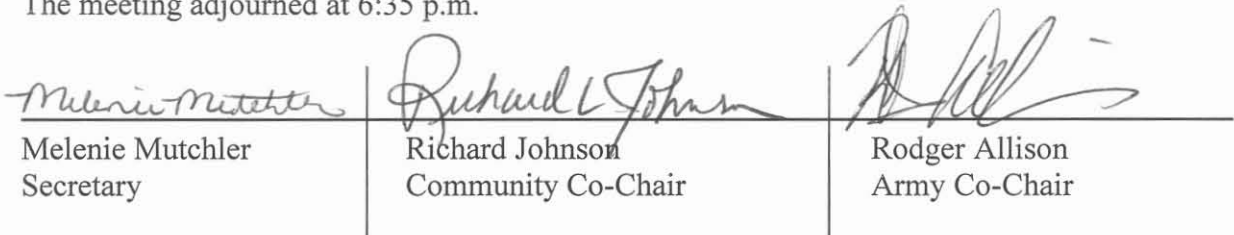 The meeting adjourned at 6:35 p.m.
Melenie Mutchler
Richard L Johnson
Melenie Mutchler
Secretary
Richard Johnson
Community Co-Chair
Rodger Allison
Army Co-Chair